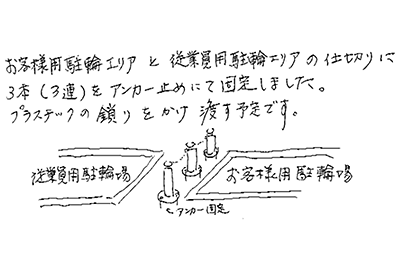 お客様用駐輪エリアと従業員用駐輪エリアの仕切りに
3本(3連)をアンカー止めにて固定しました。
プラスチックの鎖りをかけ渡す予定です。
従業員用駐輪場
お客様用駐輪場
アンカー固定